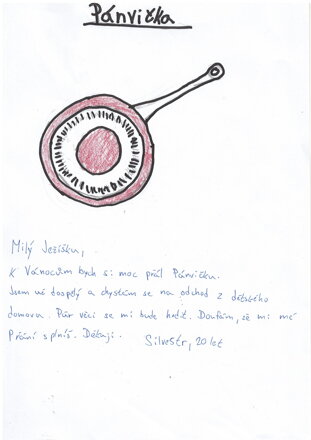 Pánvička
Milý Ježíšku,
K Vánocům bych si moc přál Pánvičku.
Jsem už dospělý a chystám se na odchod z dětského
domovu. Pár věcí se mi bude hodit. Doufám, že mi mé
Přání splníš. Děkuji.
Silvestr, 20 let